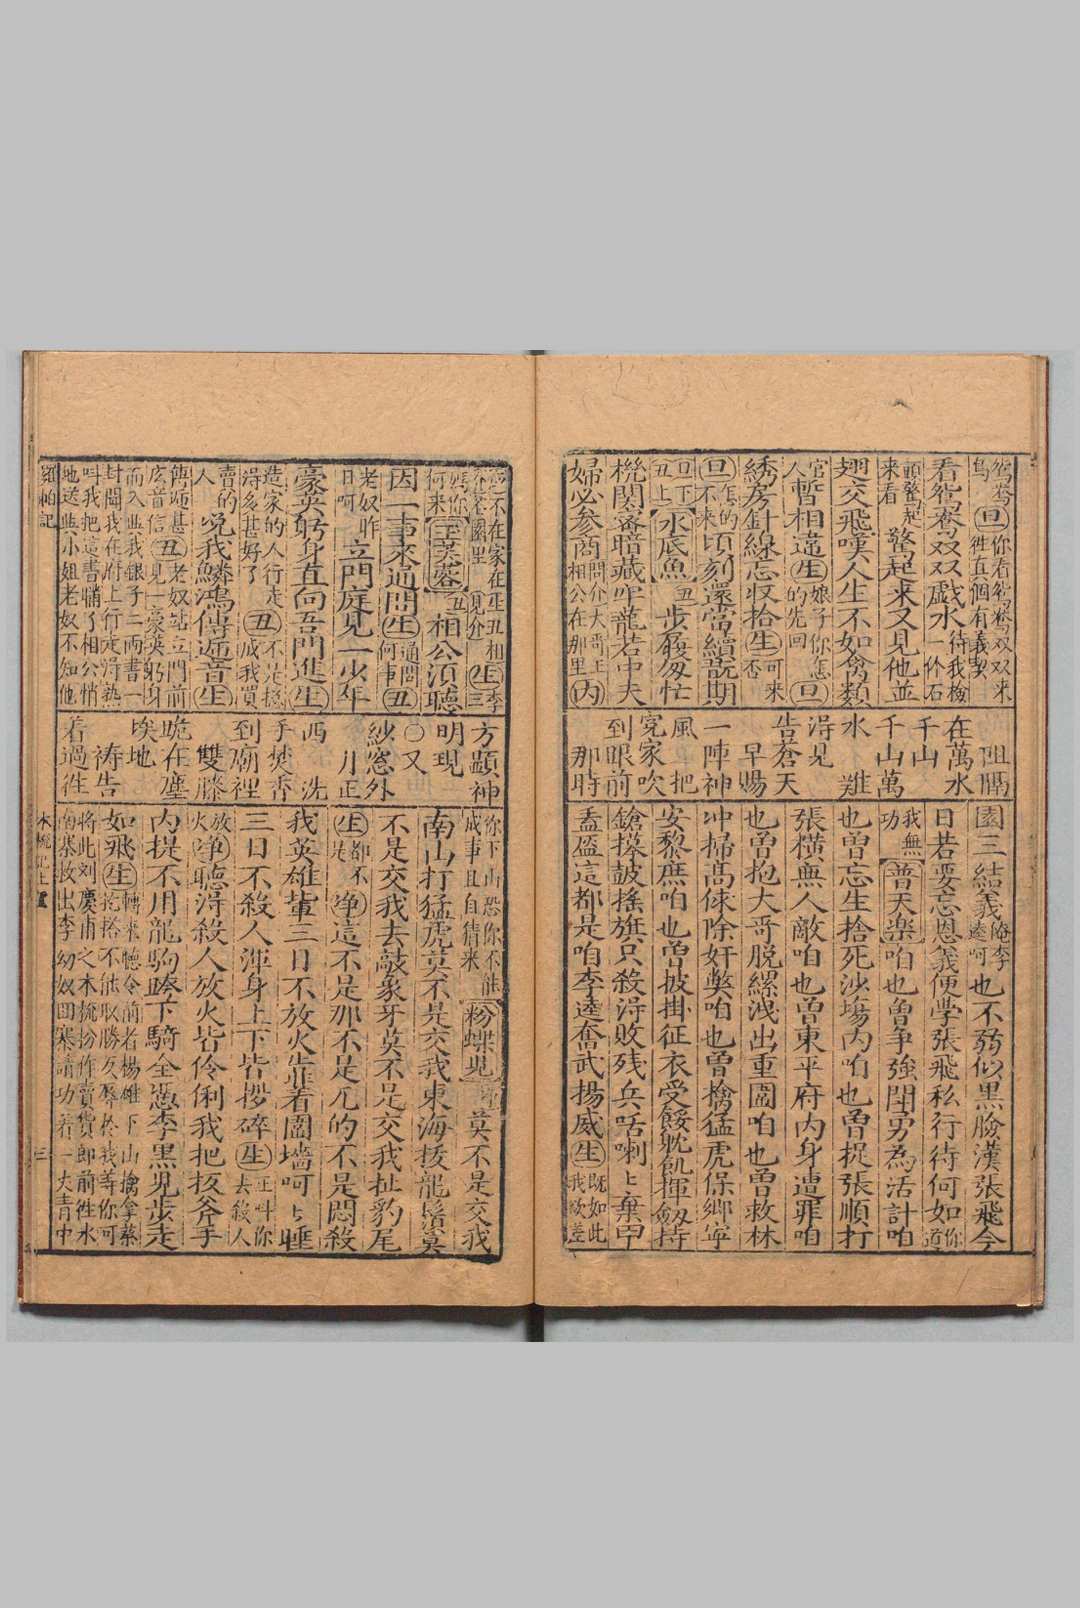 鴛鴦旦你看鴛鴦双双來
鳥徃真個有義契
看鴛鴦双双戲水待我撿一介石
頭驚起來看驚起來又見他並
翅交飛嘆人生不如禽類
官人暫相違生娘子你怎的先回旦
綉房針線忘收拾生可來否
旦怎的不來頃刻還當續旣期
旦下丑上水底魚丑步履匆忙
機関密暗藏乎龍若中夫
婦必參商問介大哥上相公在那里内
阻隔
在萬水
千山
千山萬
水難
得見
告蒼天
早賜
一陣神
風把
冤家吹
到眼前
那時
園三結義俺李逵呵也不弱似黒臉漢張飛今
日若要忘恩義便學張飛私行待何如你道
我無功普天楽咱也曽争強鬪勇為活計咱
也曽忘生捨死沙塲内咱也曽捉張順打
張橫無人敵咱也曽東平府内身遭罪咱
也曽抱大哥脱縲洩出重圍咱也曽救林
冲掃高俅除奸獘咱也曽擒猛虎保郷寧
安黎庶咱也曽披掛征衣受餒躭飢揮劔持
鎗摸皷搖旗只殺得敗残兵咶喇上棄甲
丟盔這都是咱李逵奮武揚威生既如此我欲差
不在家在園里見介生丑相生李三
媽你何來玉芙蓉丑相公須聽
因一事來通問生通問何事丑
老奴昨日呵立門庭見一少年
豪英躬身直向吾門進生
造家的人行走得多甚好了丑不是擾成我買
賣的人說我鱗鴻傳逓音生
傳逓甚庅音信丑老奴站立門前見一豪英躬身
而入與我銀子二両書一
封聞我在府上行走淂熟
呌我把這書瞞了相公悄
地送與小姐老奴不知他
羅帕記
方顯神
明現
〇又
紗窓外
月正
西洗
手焚香
到廟裡
雙膝
跪在塵
埃地
祷告
着過徃
你下山恐你不能成事且自猜來粉蝶児净莫不是交我
南山打猛虎莫不是交我東海拔龍鬚莫
不是交我去敲象牙莫不是交我扯豹尾
生都不是净這不是那不是兀的不是悶殺
我英雄輩三日不放火靠着圍墻呵上睡
三日不殺人渾身上下皆拶碎生正呌你去殺人
放火净聽得殺人放火皆伶俐我把扳斧手
内提不用龍駒跨下騎全憑李黒児步走
如飛生轉來聴令前者楊雄下山擒拿蔡花拾不能取勝反辱於我等你可
將此刘慶甫之木梳扮作賣貨郎前徃水
南寨救出李幼奴回寨請功着一大青中
水梳記上
三